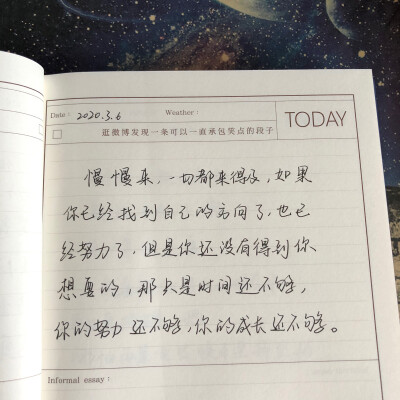 Date: 2020.3.6 Weather:
TODAY
逛微博发现一条可以一直承包笑点的段子
慢慢来，一切都来得及，如果
你已经找到自己的方向了，也已
经努力了，但是你还没有得到你
想要的，那只是时间还不够，
你的努力还不够，你的成长还不够。
Informal essay: